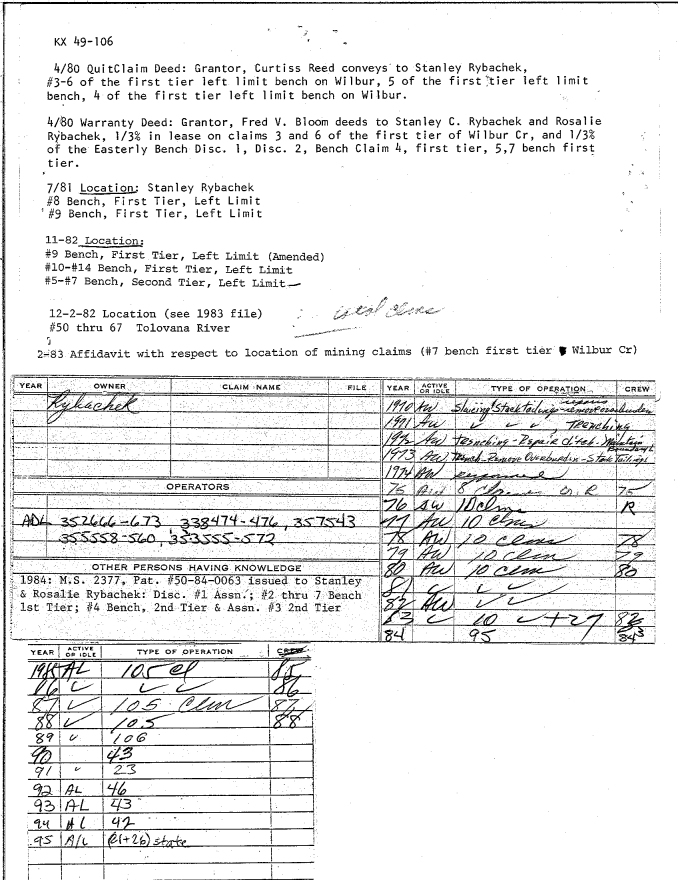 KX 49-106
4/80 QuitClaim Deed: Grantor, Curtiss Reed conveys to Stanley Rybachek,
#3-6 of the first tier left limit bench on Wilbur, 5 of the first tier left limit
bench, 4 of the first tier left limit bench on Wilbur.
4/80 Warranty Deed: Grantor, Fred V. Bloom deeds to Stanley C. Rybachek and Rosalie
Rybachek, 1/3% in lease on claims 3 and 6 of the first tier of Wilbur Cr, and 1/3%
of the Easterly Bench Disc. 1, Disc. 2, Bench Claim 4, first tier, 5,7 bench first
tier.
7/81 Location: Stanley Rybachek
#8 Bench, First Tier, Left Limit
#9 Bench, First Tier, Left Limit
11-82 Location:
#9 Bench, First Tier, Left Limit (Amended)
#10-#14 Bench, First Tier, Left Limit
#5-#7 Bench, Second Tier, Left Limit
12-2-82 Location (see 1983 file)
#50 thru 67 Tolovana River
2-83 Affidavit with respect to location of mining claims (#7 bench first tier Wilbur Cr)
YEAR OWNER CLAIM NAME FILE
Rybachek
OPERATORS
ADL 352666-673, 338474-476, 357543
355558-560, 353555-572
OTHER PERSONS HAVING KNOWLEDGE
1984: M.S. 2377, Pat. #50-84-0063 issued to Stanley
& Rosalie Rybachek: Disc. #1 Assn.; #2 thru 7 Bench
1st Tier; #4 Bench, 2nd Tier & Assn. #3 2nd Tier
YEAR ACTIVE OR IDLE TYPE OF OPERATION CREW
1970 AW Sluicing Stack tailings - repairs remove overburden
1971 AW ✓ ✓ ✓, Trenching
1972 AW trenching - Repair ditch - Maintain Boundary L
1973 AW Trench - Remove Overburden - Stack Tailings
1974 AW
75 8 R 75
76 AW 10 clms R
77 AW 10 clms
78 AW 10 clms 78
79 AW 10 clm 79
80 AW 10 clm 80
81 ✓ ✓ ✓
82 AW ✓ ✓
83 ✓ 10 ✓ +27
84 95
YEAR ACTIVE OR IDLE TYPE OF OPERATION CREW
1985 AL 105 cl 85
86 ✓ ✓ ✓ 86
87 ✓ 105 Clm 87
88 ✓ 105 88
89 ✓ 106
90 43
91 " 23
92 AL 46
93 AL 43
94 AL 42
95 A/L (21+26) state